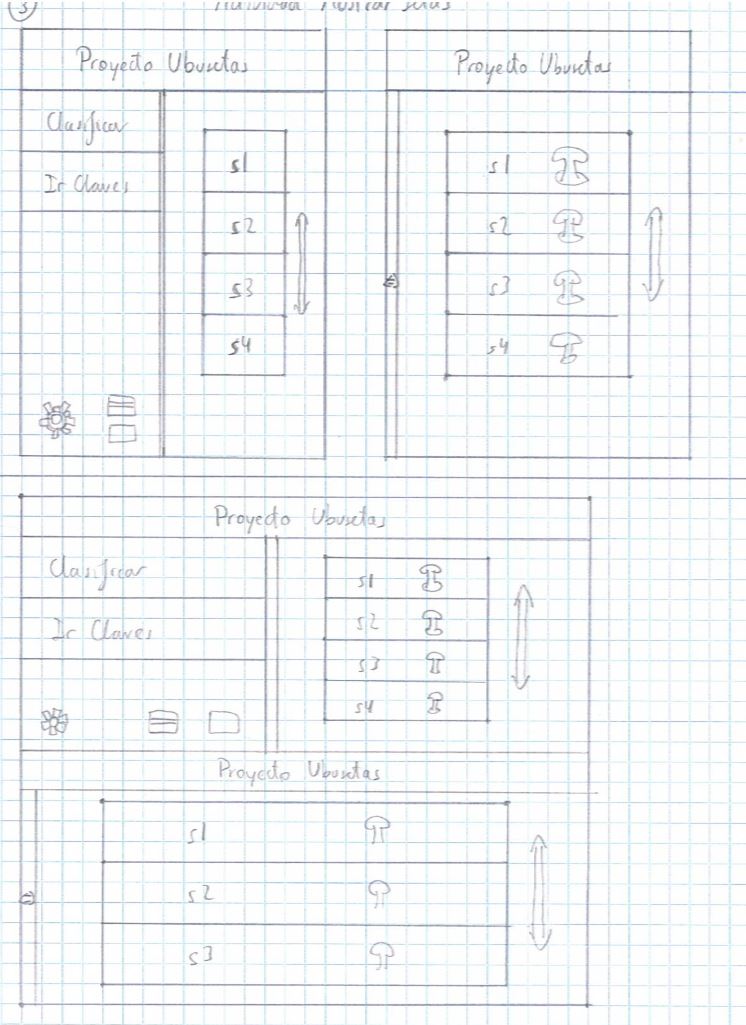 3
Proyecto Ubusetas
Clasificar
Ir Claves
s1
s2
s3
s4
Proyecto Ubusetas
s1
s2
s3
s4
Proyecto Ubusetas
Clasificar
Ir Claves
s1
s2
s3
s4
Proyecto Ubusetas
s1
s2
s3